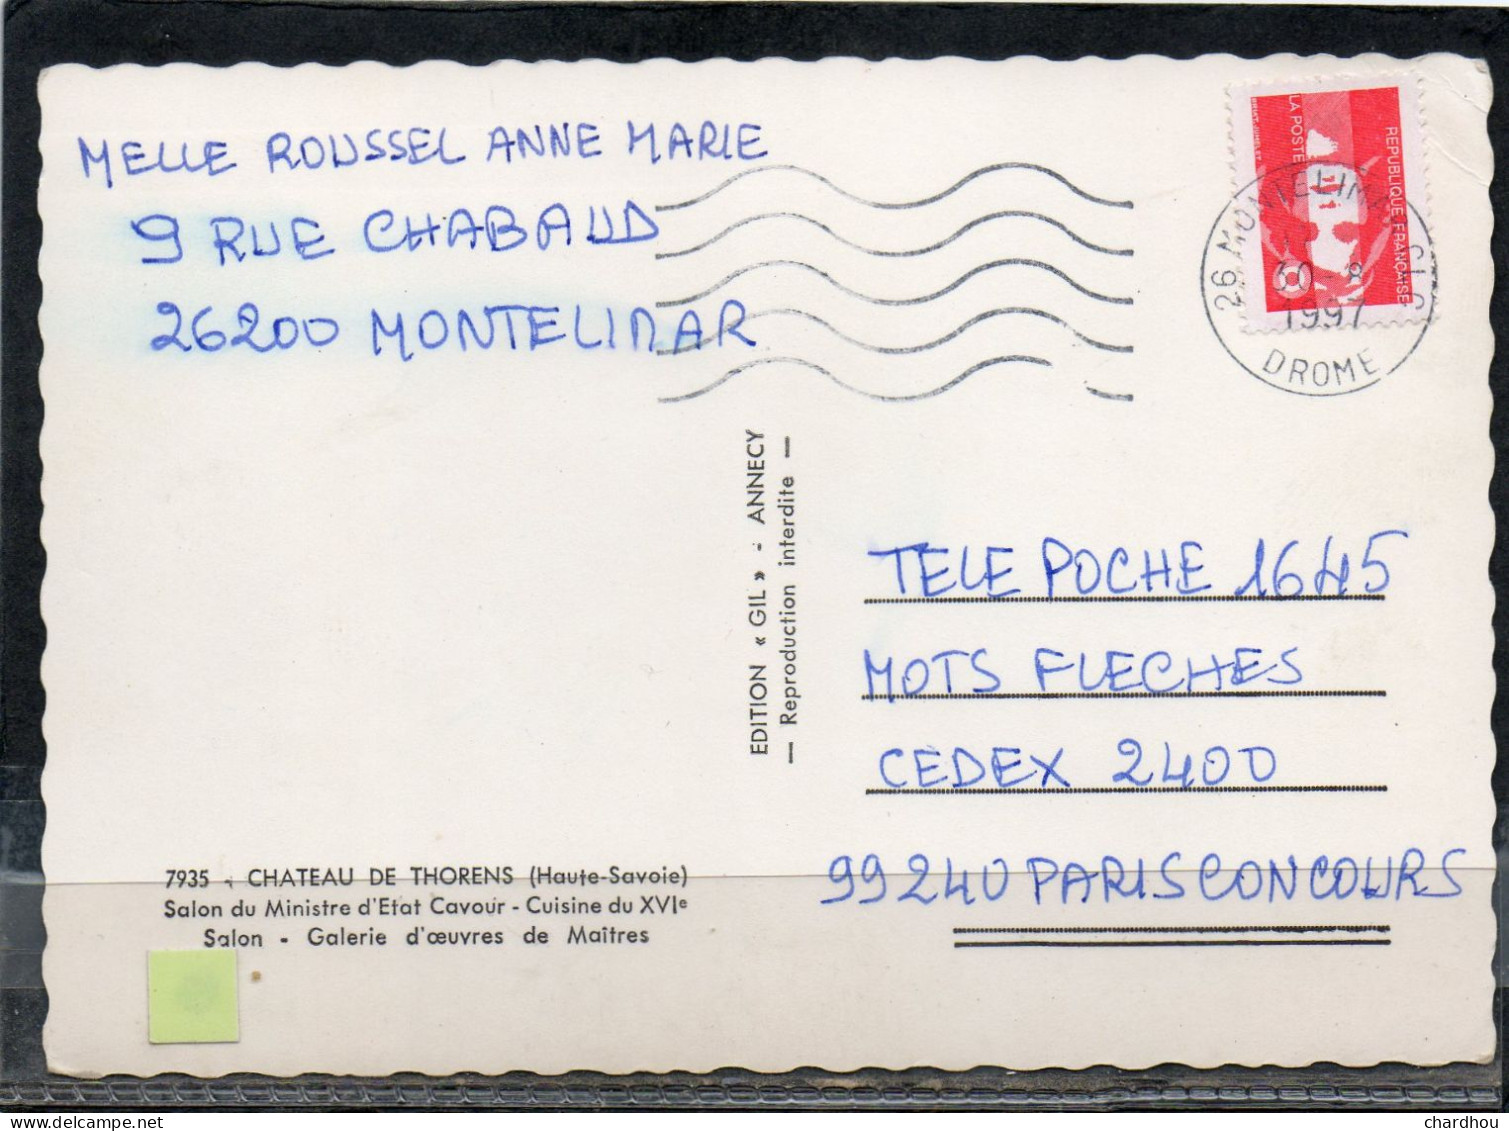 MELLE ROUSSEL ANNE MARIE
9 RUE CHABAUD
26200 MONTELIMAR
REPUBLIQUE FRANÇAISE
LA POSTE
26 MONTELIMAR
30-8
1997
DROME
EDITION « GIL » - ANNECY
— Reproduction interdite —
TELE POCHE 1645
MOTS FLECHES
CEDEX 2400
99240 PARIS CONCOURS
7935 - CHATEAU DE THORENS (Haute-Savoie)
Salon du Ministre d'Etat Cavour - Cuisine du XVIe
Salon - Galerie d'œuvres de Maîtres
chardhou